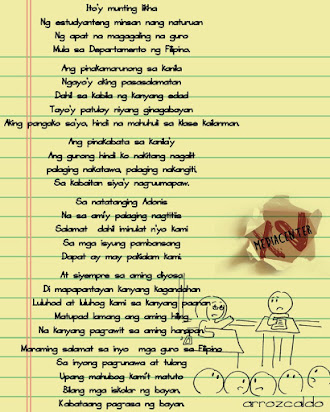 Ito'y munting likha
Ng estudyanteng minsan nang naturuan
Ng apat na magagaling na guro
Mula sa Departamento ng Filipino.
Ang pinakamarunong sa kanila
Ngayo'y aking pasasalamatan
Dahil sa kabila ng kanyang edad
Tayo'y patuloy niyang ginagabayan
Aking pangako sa'yo, hindi na mahuhuli sa klase kailanman.
Ang pinakabata sa kanila'y
Ang gurong hindi ko nakitang nagalit
palaging nakatawa, palaging nakangiti,
Sa kabaitan siya'y nag-uumapaw.
Sa natatanging Adonis
Na sa ami'y palaging nagtitiis
Salamat dahil iminulat n'yo kami
Sa mga isyung pambansang
Dapat ay may pakialam kami.
At siyempre sa aming diyosa
Di mapapantayan kanyang kagandahan
Luluhod at luluhog kami sa kanyang paanan
Matupad lamang ang aming hiling
Na kanyang pag-awit sa aming harapan.
Maraming salamat sa inyo mga guro sa Filipino
Sa inyong pagunawa at tulong
Upang mahubog kami't matuto
Bilang mga iskolar ng bayan,
Kabataang pag-asa ng bayan.
MEDIACENTER
arrozcaldo